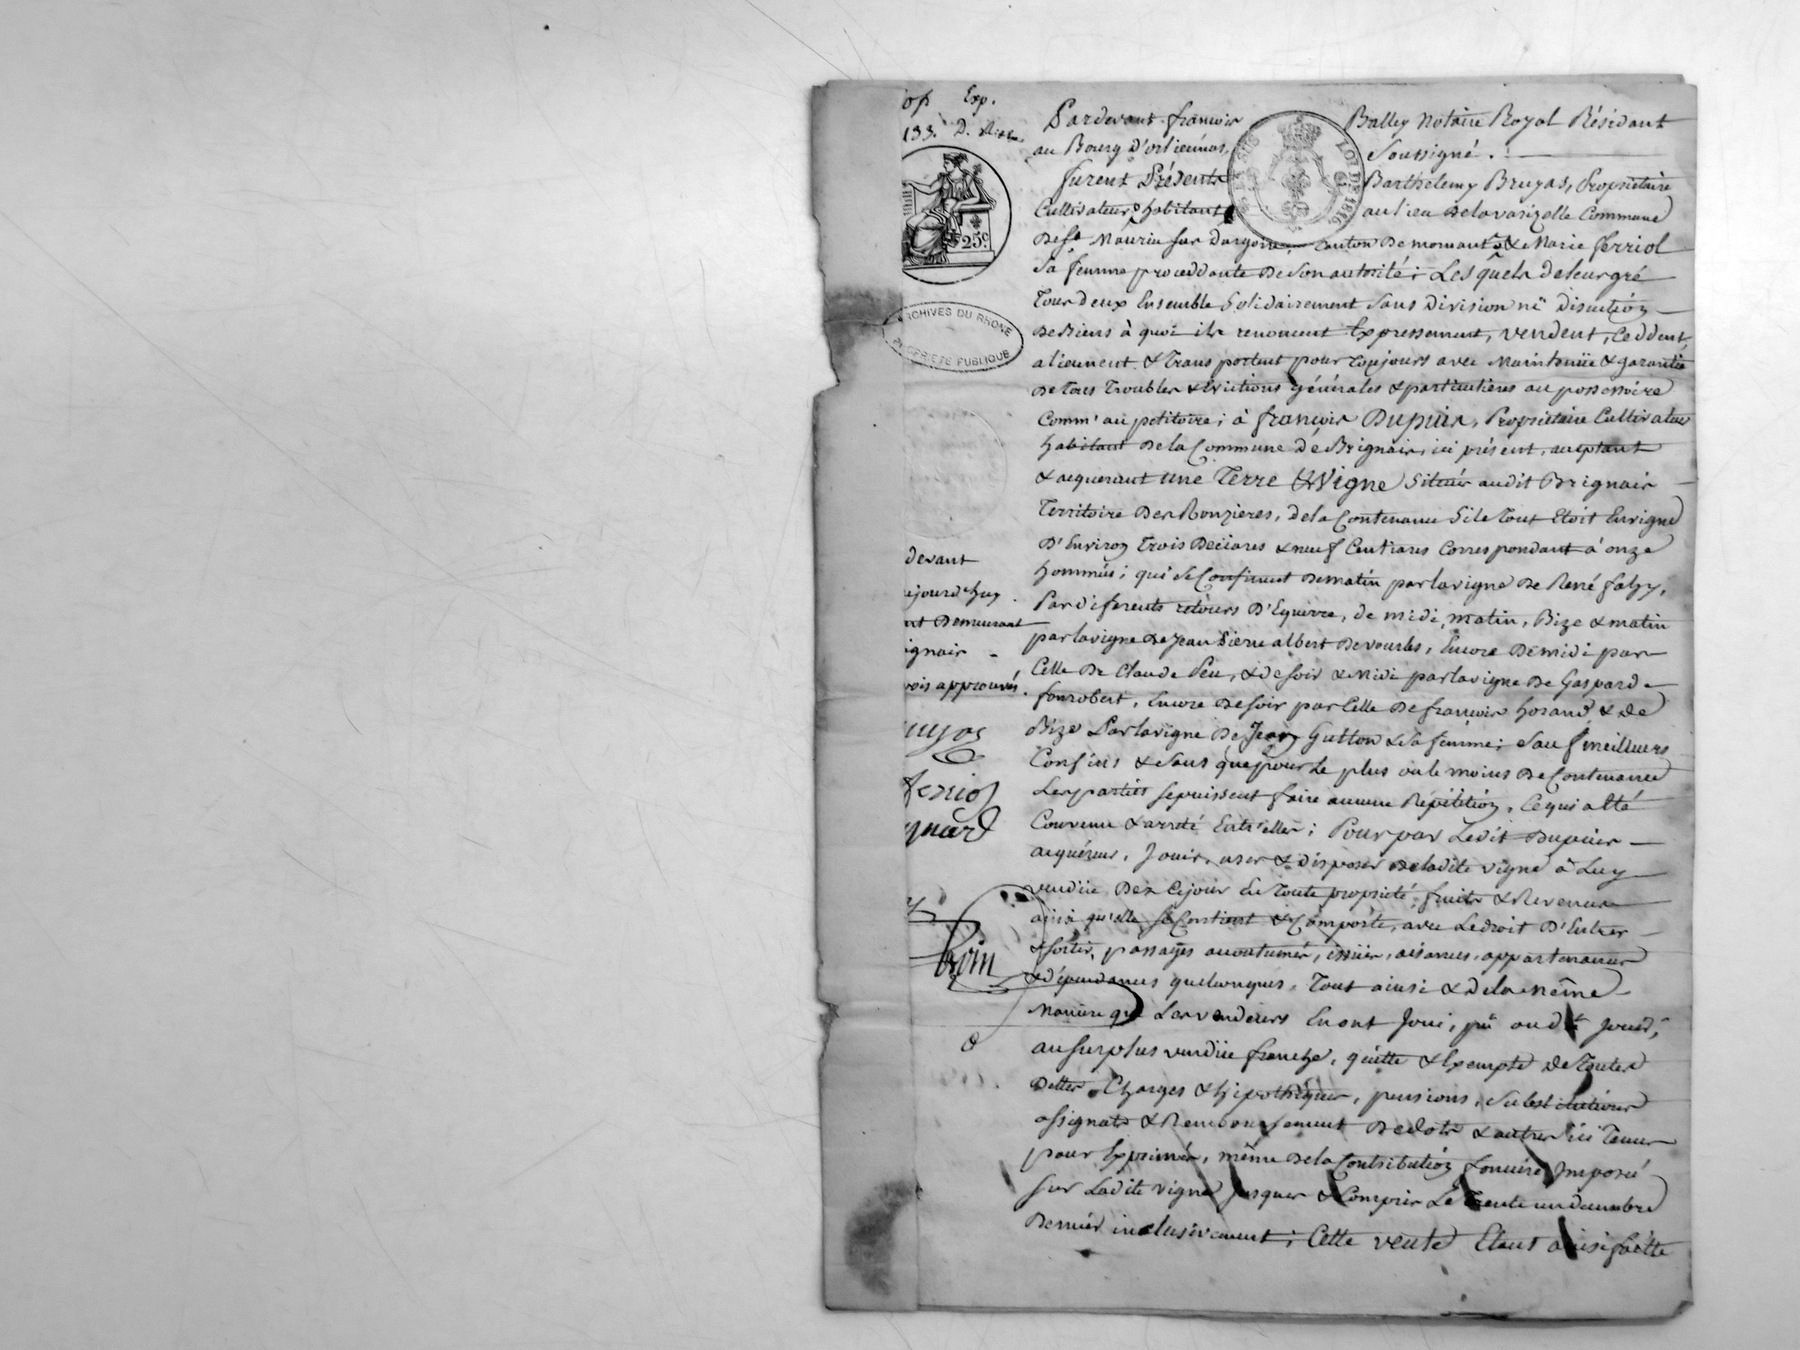 Exp.
133.
25.c
ARCHIVES DU RHONE
PROPRIETE PUBLIQUE
devant
ujourd'huy
nt Demeurant
ignais
vois approuvés.
uyas
ferriol
gnard
LOI DE 1816
Pardevant françois Balley Notaire Royal Résidant
au Bourg d'orliennas, Soussigné.
furent Présents Barthelemy Bruyas, Propriétaire
Cultivateur, habitant au lieu Delavarizelle Commune
De St Maurice sur dargoire, Canton De mornant, & Marie ferriol
Sa femme proceddante De son autorité; Lesquels de leur gré
Tous deux Ensemble Solidairement Sans Division ni Discution
De Biens à quoi ils renoncent Expressement, vendent, Ceddent,
alienent & Transportent pour toujours avec Maintenüe & garantie
De Tous Troubles & évictions générales & particulières au possessoire
Comm' au petitoire; à françois Dupuis, Propriétaire Cultivateur
habitant De la Commune de Brignais, ici présent, acceptant
& acquerant une Terre & Vigne Situées audit Brignais
Territoire Des Ronzieres, de la Contenance Si le Tout Etoit En vigne
D'Environ Trois Deciares & neuf Centiares Correspondant à onze
hommées; qui se Confinent De matin par la vigne De René fahy,
Par diferents retours D'Equerre, de midi, matin, Bize & matin
par la vigne de Jean Pierre albert De vourles, Encore De midi par
Celle De Claude Peu, & de soir & Midi par la vigne De Gaspard
fonrobert, Encore De soir par Celle De françois horand & De
Bize Par la vigne De Jean Gutton & Sa femme; Sauf meilleurs
Confins & Sans que pour le plus ou le moins De Contenance
Les parties se puissent faire aucune Répétition, Ce qui a Eté
Convenu & arrêté Entr'elles; Pour par Ledit Dupuis
acquéreur, Jouir, user & disposer De ladite vigne à Luy
vendüe Dez Cejour En Toute propriété, fruits & Revenus
ainsi qu'elle Se Contient & Comporte, avec Le droit D'Entrer
& Sortir, passages accoutumés, issües, aisances, appartenances
& dépendances quelconques, Tout ainsi & de la Même
Maniere que Les vendeurs En ont Joui, pû ou dû Jouir,
au Surplus vendüe franche, quitte & Exempte De Toutes
Dettes, Charges & hipothèques, pensions, Substitutions
assignats & Remboursement De dots & autres ici Tenus
pour Exprimés, même De la Contribution fonciere Imposée
Sur Ladite vigne Jusques & Compris Le Trente un decembre
Dernier inclusivement; Cette vente Etant ainsi faitte